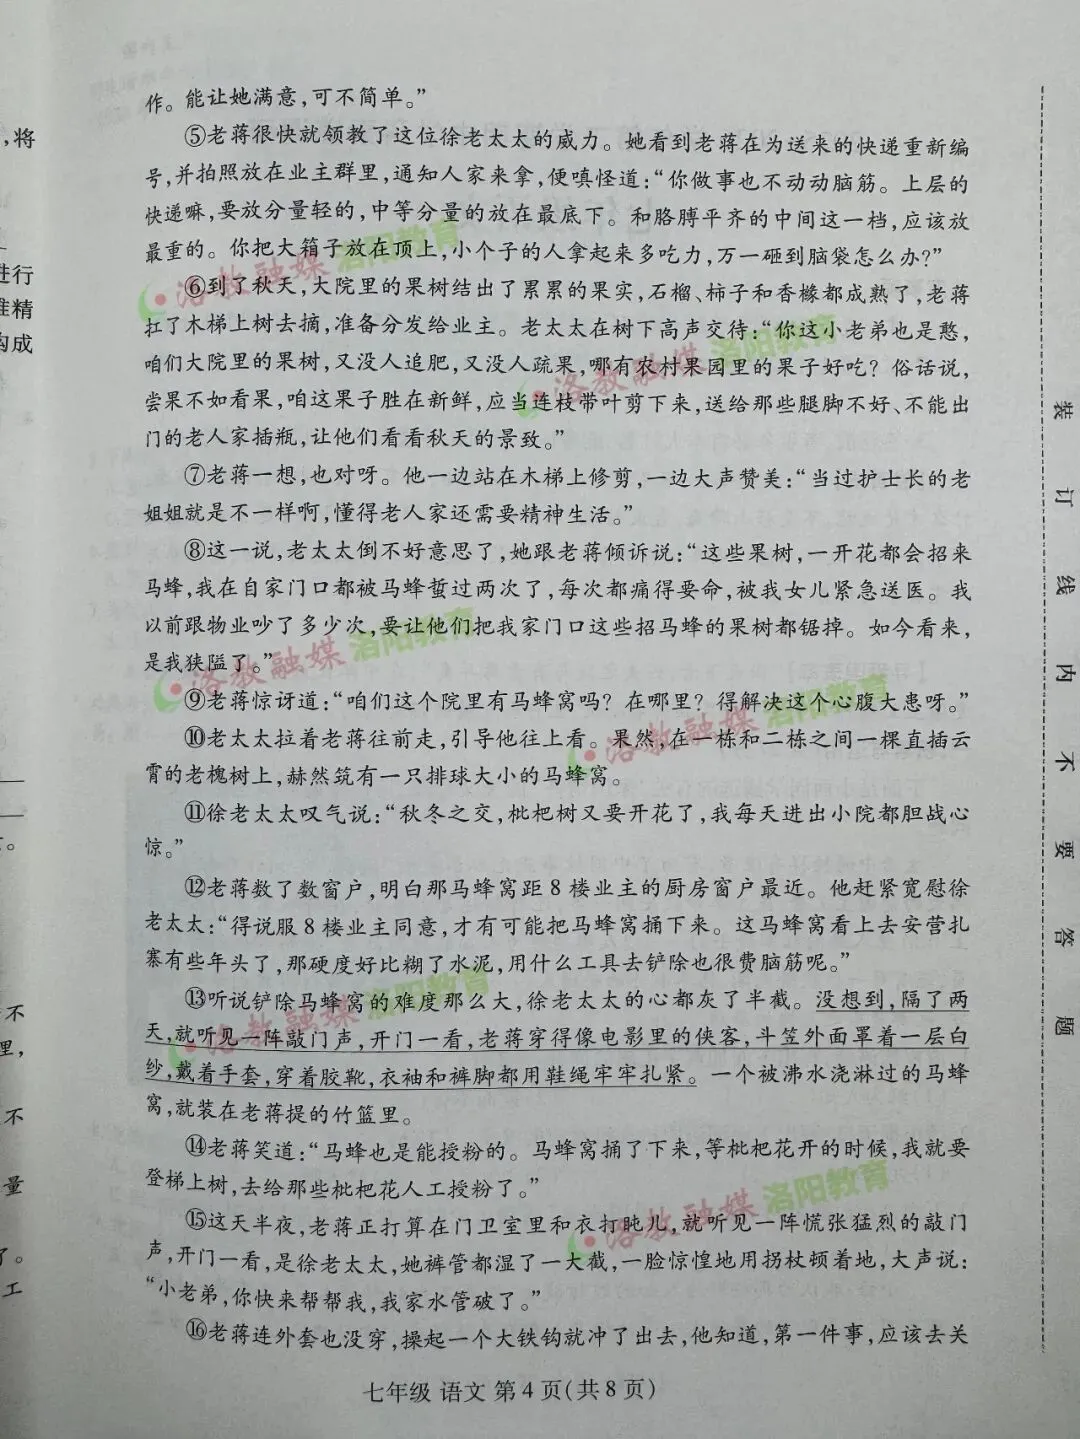 作。能让她满意,可不简单。”
⑤老蒋很快就领教了这位徐老太太的威力。她看到老蒋在为送来的快递重新编
号,并拍照放在业主群里,通知人家来拿,便嗔怪道:“你做事也不动动脑筋。上层的
快递嘛,要放分量轻的,中等分量的放在最底下。和胳膊平齐的中间这一档,应该放
最重的。你把大箱子放在顶上,小个子的人拿起来多吃力,万一砸到脑袋怎么办?”
⑥到了秋天,大院里的果树结出了累累的果实,石榴、柿子和香橼都成熟了,老蒋
扛了木梯上树去摘,准备分发给业主。老太太在树下高声交待:“你这小老弟也是憨,
咱们大院里的果树,又没人追肥,又没人疏果,哪有农村果园里的果子好吃?俗话说,
尝果不如看果,咱这果子胜在新鲜,应当连枝带叶剪下来,送给那些腿脚不好、不能出
门的老人家插瓶,让他们看看秋天的景致。”
⑦老蒋一想,也对呀。他一边站在木梯上修剪,一边大声赞美:“当过护士长的老
姐姐就是不一样啊,懂得老人家还需要精神生活。”
⑧这一说,老太太倒不好意思了,她跟老蒋倾诉说:“这些果树,一开花都会招来
马蜂,我在自家门口都被马蜂蜇过两次了,每次都痛得要命,被我女儿紧急送医。我
以前跟物业吵了多少次,要让他们把我家门口这些招马蜂的果树都锯掉。如今看来,
是我狭隘了。”
⑨老蒋惊讶道:“咱们这个院里有马蜂窝吗?在哪里?得解决这个心腹大患呀。”
⑩老太太拉着老蒋往前走,引导他往上看。果然,在一栋和二栋之间一棵直插云
霄的老槐树上,赫然筑有一只排球大小的马蜂窝。
⑪徐老太太叹气说:“秋冬之交,枇杷树又要开花了,我每天进出小院都胆战心
惊。”
⑫老蒋数了数窗户,明白那马蜂窝距8楼业主的厨房窗户最近。他赶紧宽慰徐
老太太:“得说服8楼业主同意,才有可能把马蜂窝捅下来。这马蜂窝看上去安营扎
寨有些年头了,那硬度好比糊了水泥,用什么工具去铲除也很费脑筋呢。”
⑬听说铲除马蜂窝的难度那么大,徐老太太的心都灰了半截。没想到,隔了两
天,就听见一阵敲门声,开门一看,老蒋穿得像电影里的侠客,斗笠外面罩着一层白
纱,戴着手套,穿着胶靴,衣袖和裤脚都用鞋绳牢牢扎紧。一个被沸水浇淋过的马蜂
窝,就装在老蒋提的竹篮里。
⑭老蒋笑道:“马蜂也是能授粉的。马蜂窝捅了下来,等枇杷花开的时候,我就要
登梯上树,去给那些枇杷花人工授粉了。”
⑮这天半夜,老蒋正打算在门卫室里和衣打盹儿,就听见一阵慌张猛烈的敲门
声,开门一看,是徐老太太,她裤管都湿了一大截,一脸惊惶地用拐杖顿着地,大声说:
“小老弟,你快来帮帮我,我家水管破了。”
⑯老蒋连外套也没穿,操起一个大铁钩就冲了出去,他知道,第一件事,应该去关
七年级 语文 第4页(共8页)
装订线内不要答题
,将
进行
准精
构成
。
不
理,
不
量
了。
工
洛教融媒 洛阳教育
洛教融媒 洛阳教育
洛教融媒 洛阳教育
洛教融媒 洛阳教育
洛教融媒 洛阳教育
洛教融媒 洛阳教育